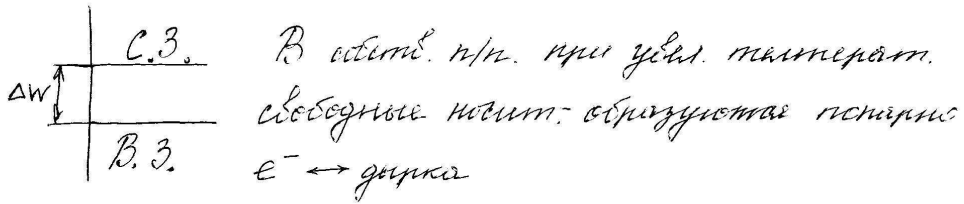 С.З.
ΔW
В.З.
В собств. п/п. при увел. температ.
свободные носит. образуются попарно
e⁻ ↔ дырка